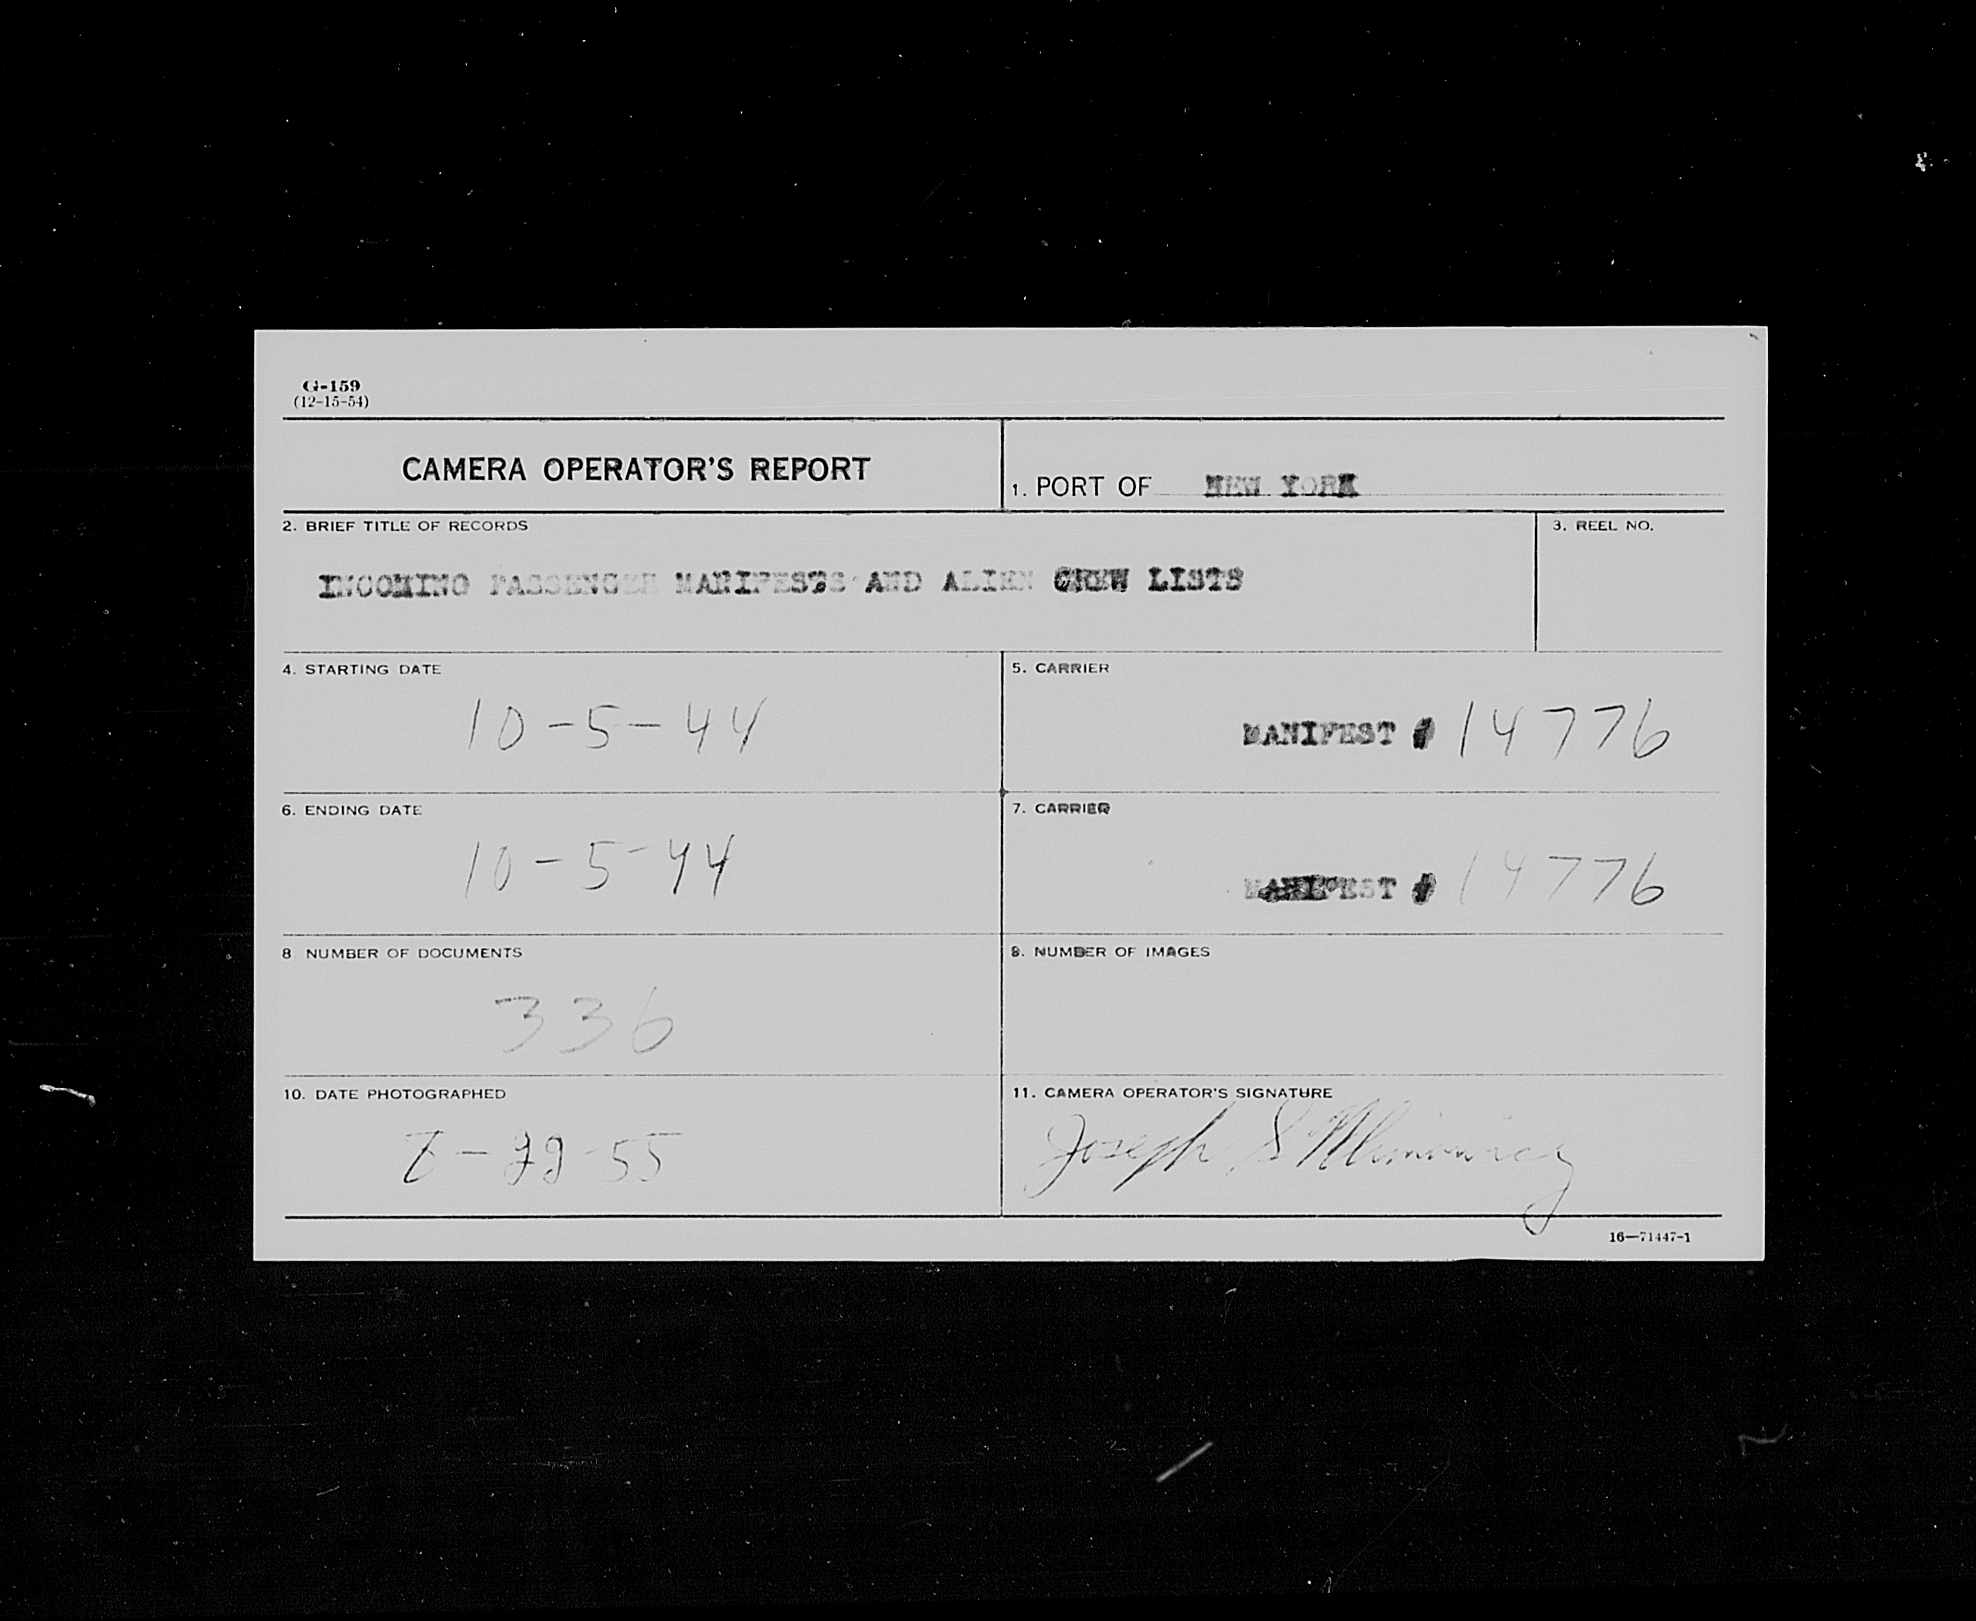 G-159
(12-15-54)
CAMERA OPERATOR'S REPORT
1. PORT OF NEW YORK
2. BRIEF TITLE OF RECORDS
3. REEL NO.
INCOMING PASSENGER MANIFESTS AND ALIEN CREW LISTS
4. STARTING DATE
5. CARRIER
10-5-44
MANIFEST # 14776
6. ENDING DATE
7. CARRIER
10-5-44
MANIFEST # 14776
8 NUMBER OF DOCUMENTS
9. NUMBER OF IMAGES
336
10. DATE PHOTOGRAPHED
11. CAMERA OPERATOR'S SIGNATURE
55
Joseph S
16—71447-1